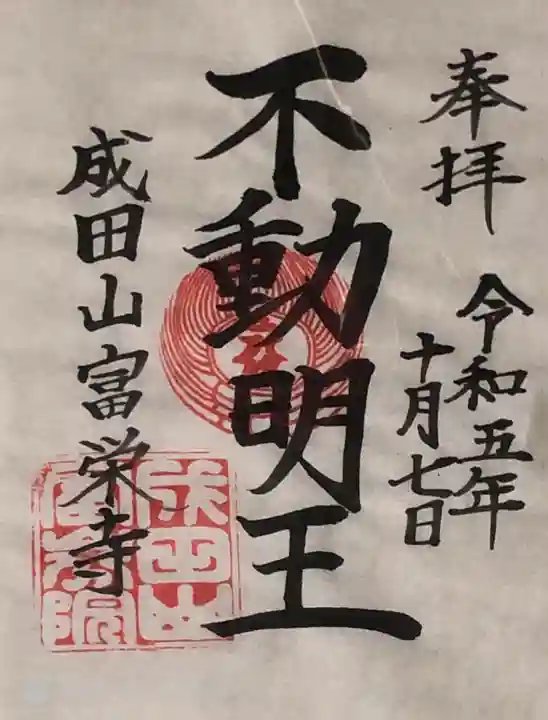 奉拝
令和五年
十月七日
不動明王
成田山富栄寺
成田山